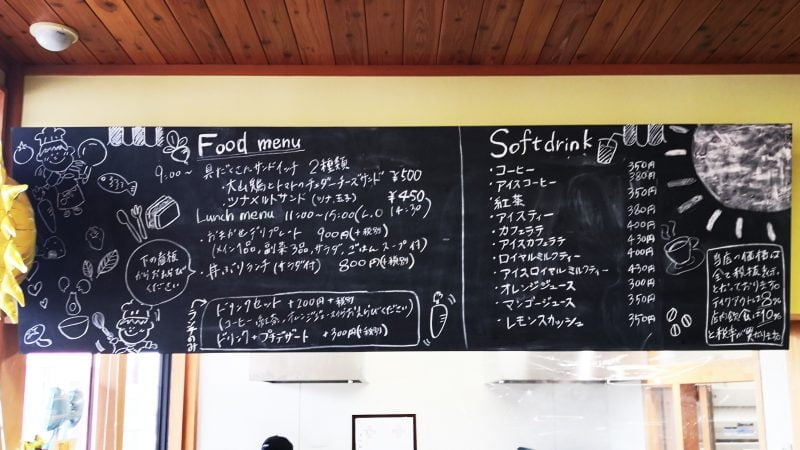 Food menu
9:00〜 具だくさんサンドイッチ 2種類
・大山鶏とトマトのチェダーチーズサンド ¥500
・ツナメルトサンド(ツナ、玉子) ¥450
Lunch menu 11:00〜15:00(L.O 14:30)
・おまかせデリプレート 900円(+税別)
(メイン1品、副菜3品、サラダ、ごはん、スープ付)
・丼ぶりランチ(サラダ付) 800円(+税別)
ランチのみ
ドリンクセット +200円+税別
(コーヒー・紅茶・オレンジ
おえらびください)
ドリンク+プチデザート +300円(+税別)
下の看板
からお選び
ください
Soft drink
・コーヒー 350円
・アイスコーヒー 380円
・紅茶 350円
・アイスティー 380円
・カフェラテ 400円
・アイスカフェラテ 430円
・ロイヤルミルクティー 400円
・アイスロイヤルミルクティー 430円
・オレンジジュース 300円
・マンゴージュース 350円
・レモンスカッシュ 350円
当店の価格は
全て税抜表示
となっております。
テイクアウトは8%
店内飲食は10%
と税率が異なります。